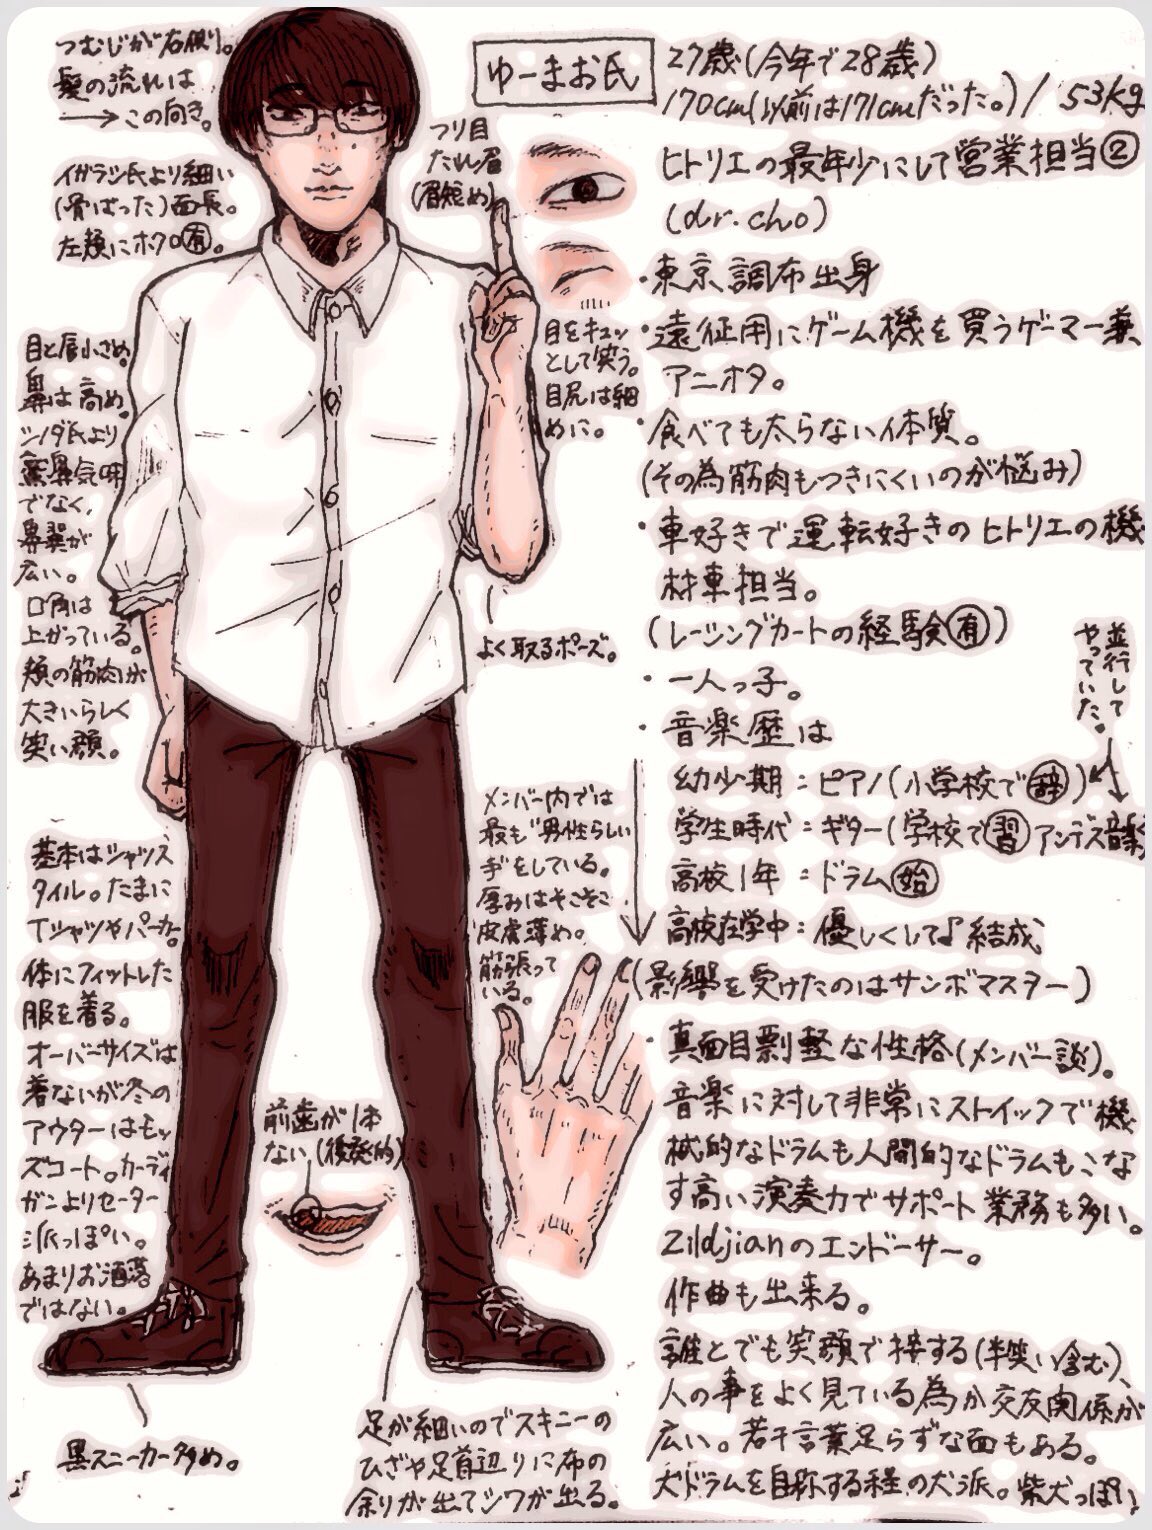 つむじが右側り。
髪の流れは
→この向き。
イガラシ氏より細い
(骨ばった)面長。
左頬にホクロ有。
ゆーまお氏
27歳(今年で28歳)
170cm(以前は171cmだった。) / 53kg
ヒトリエの最年少にして営業担当②
(dr.cho)
・東京調布出身
・遠征用にゲーム機を買うゲーマー兼
アニオタ。
・食べても太らない体質。
(その為筋肉もつきにくいのが悩み)
・車好きで運転好きのヒトリエの機
材車担当。
(レーシングカートの経験有)
・一人っ子。
・音楽歴は
幼少期:ピアノ(小学校で辞)
学生時代:ギター(学校で習)アンデス音楽
並行して
やっていた。
高校1年:ドラム始
高校在学中:優しくして♪結成
(影響を受けたのはサンボマスター)
・真面目剽軽な性格(メンバー談)。
音楽に対して非常にストイックで機
械的なドラムも人間的なドラムもこな
す高い演奏力でサポート業務も多い。
Zildjianのエンドーサー。
作曲も出来る。
誰とでも笑顔で接する(半笑い含む)、
人の事をよく見ている為か交友関係が
広い。若干言葉足らずな面もある。
犬ドラムを自称する程の犬派。柴犬っぽい
ツリ目
たれ眉
(眉短め)
目をキュッ
として笑う。
目尻は細
めに。
よく取るポーズ。
目と唇小さめ。
鼻は高め。
シノダ氏より
鷲鼻気味
でなく、
鼻翼が
広い。
口角は
上がっている。
頬の筋肉が
大きいらしく
笑い顔。
メンバー内では
最も"男性らしい
手"をしている。
厚みはそこそこ
皮膚薄め。
筋張って
いる。
基本はシャツス
タイル。たまに
Tシャツやパーカー。
体にフィットした
服を着る。
オーバーサイズは
着ないが冬の
アウターはモッ
ズコート。カーディ
ガンよりセーター
派っぽい。
あまりお洒落
ではない。
前歯が1本
ない(後発的)
黒スニーカー多め。
足が細いのでスキニーの
ひざや足首辺りに布の
余りが出てシワが出る。